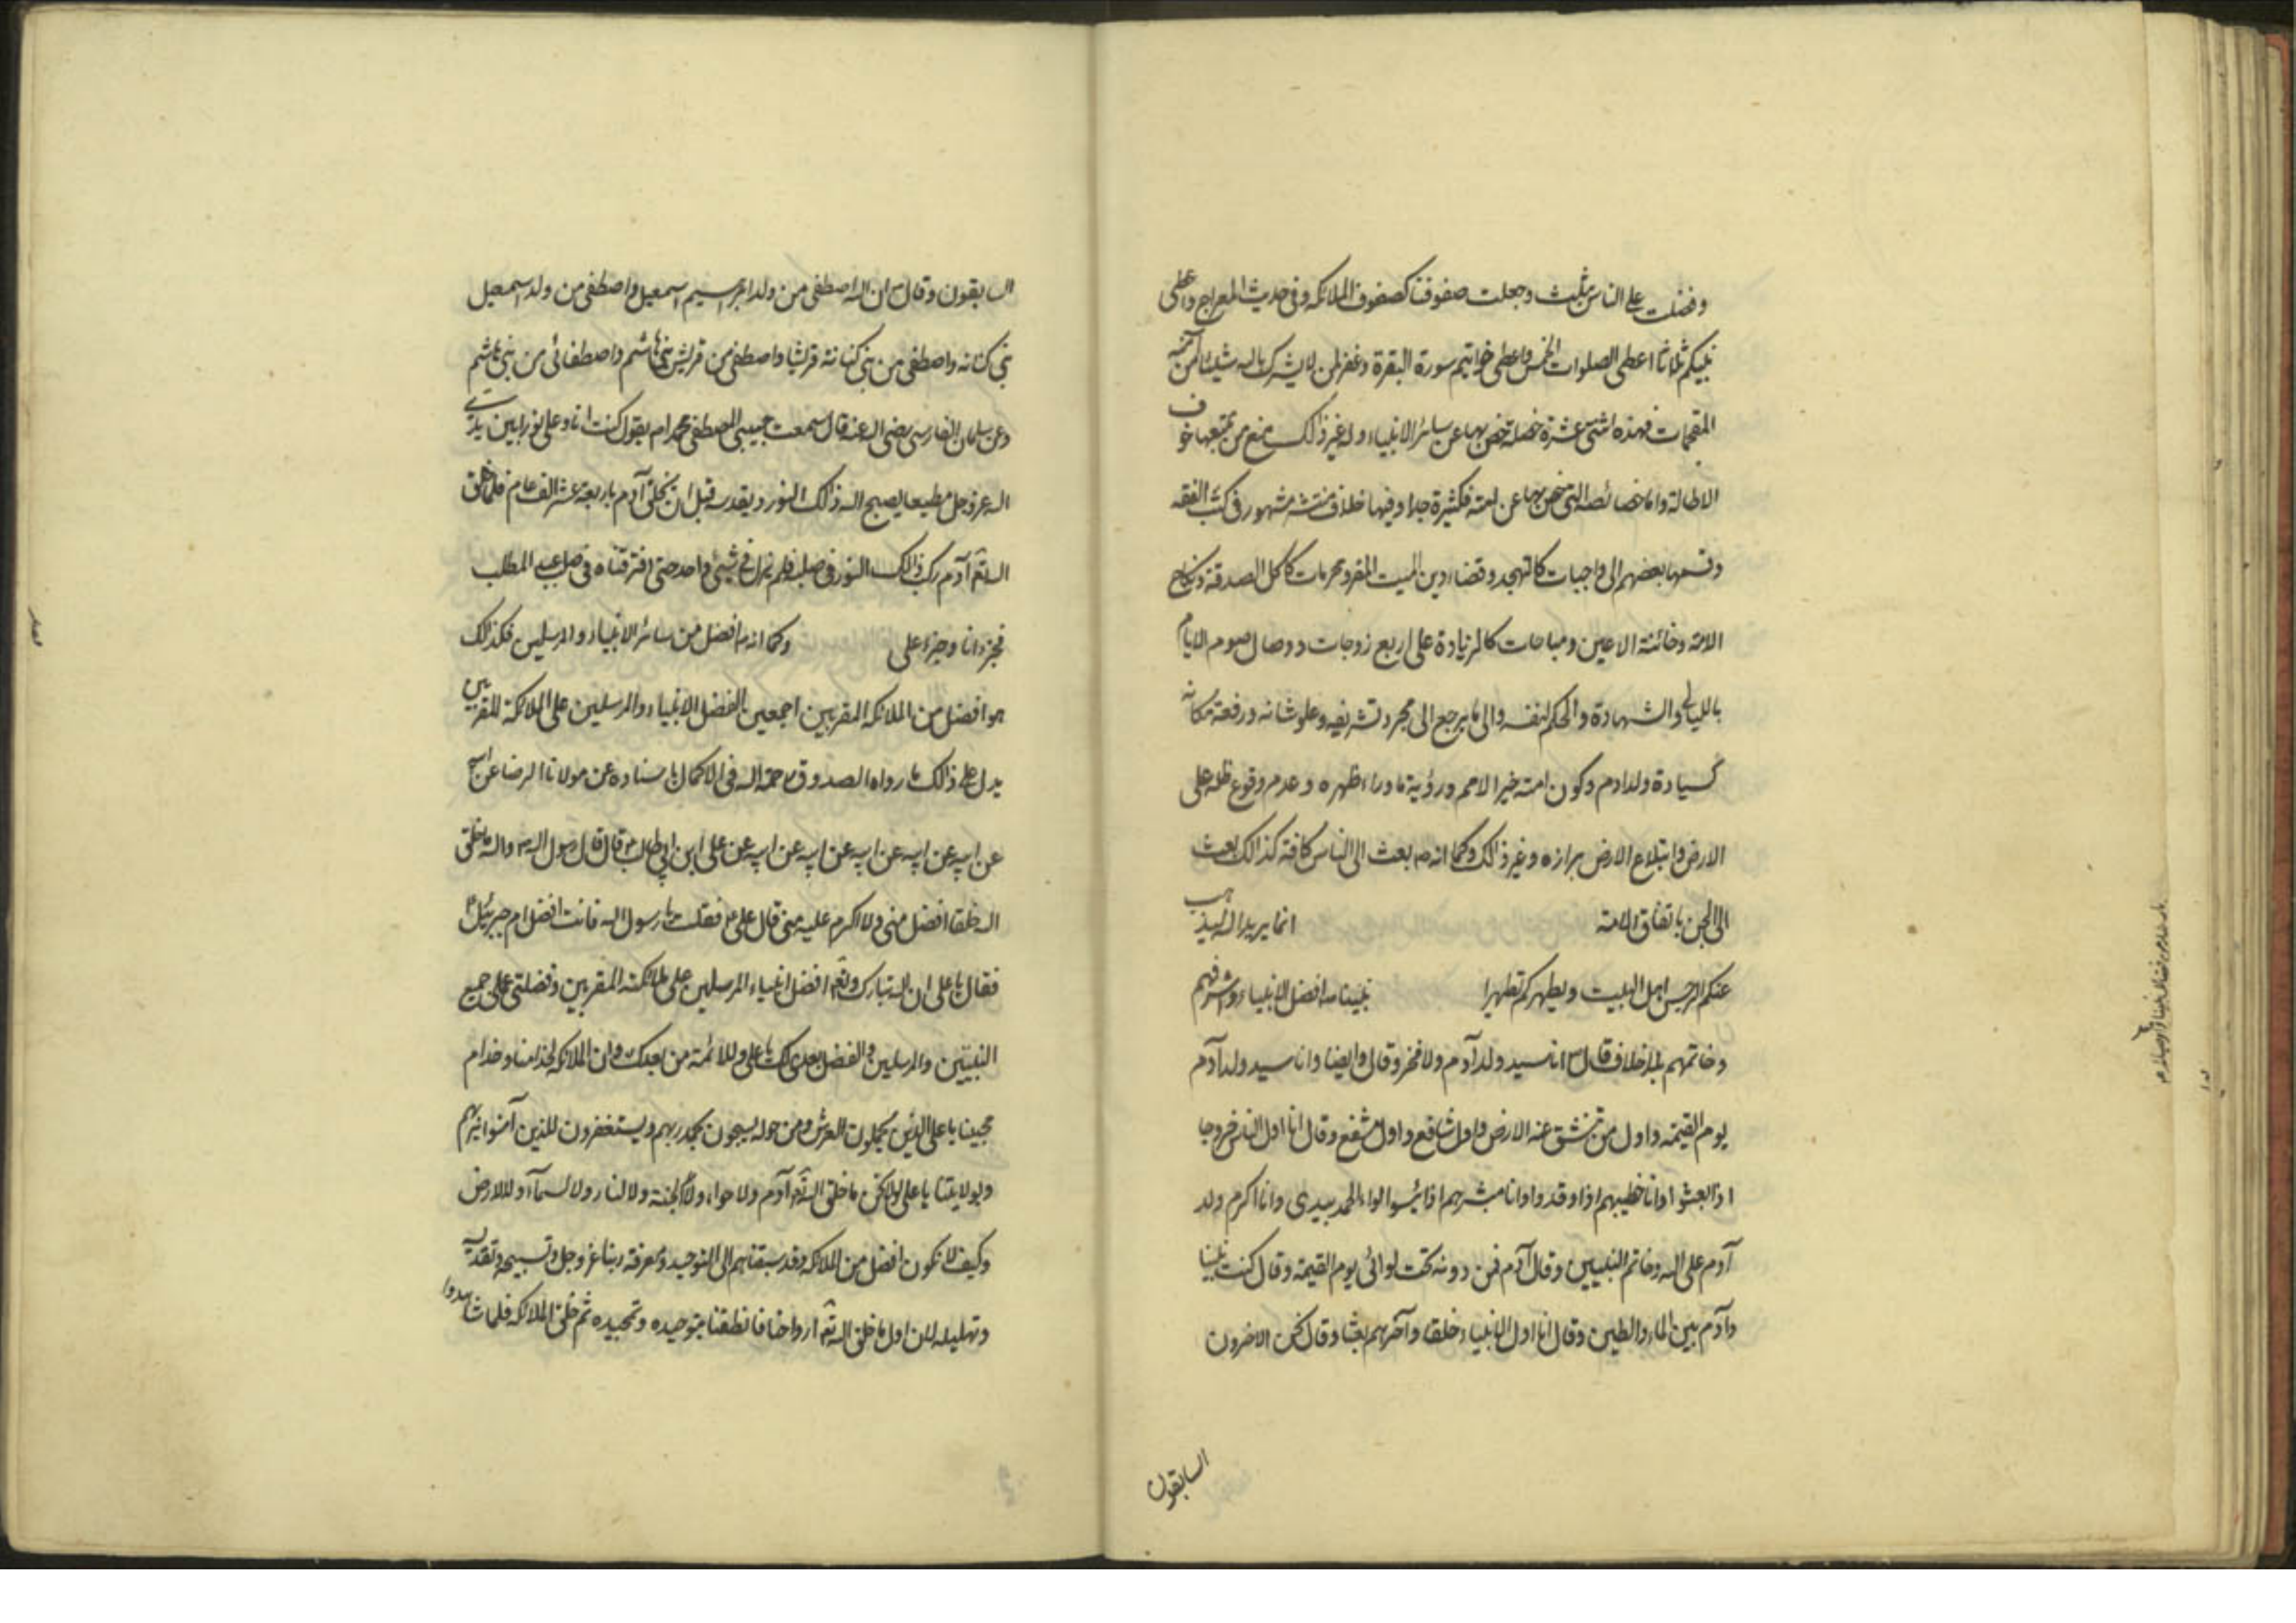 وفضلت على الناس بثلث وجعلت صفوفنا كصفوف الملائكه وفى حديث المعراج واعطى
نبيكم ثلاثا اعطى الصلوات الخمس واعطى خواتيم سورة البقرة وغفر لمن لا يشرك بالله شيئا من امته
المقحمات فهذه اثنتى عشرة خصلة خص بها عن سائر الانبياء وله غير ذالك منع من تتبعها خوف
الاطالة واما خصائصه التى خص بها عن امته فكثيرة جدا وفيها خلاف منتشر مشهور فى كتب الفقه
وقسمها بعضهم الى واجبات كالتهجد وقضاء دين الميت المقر ومحرمات كاكل الصدقة ونكاح
الامة وخائنة الاعين ومباحات كالزيادة على اربع زوجات ووصال صوم الايام
بالليالى والشهادة والحكم لنفسه والى ما يرجع الى مجرد تشريفه وعلو شانه ورفعة مكانه
كسيادة ولد ادم وكون امته خير الامم ورؤية ما وراء ظهره وعدم وقوع ظله على
الارض وابتلاع الارض برازه وغير ذالك وكما انه ص بعث الى الناس كافة كذالك بعث
الى الجن باتفاق الامة انما يريد الله ليذهب
عنكم الرجس اهل البيت ويطهركم تطهيرا نبينا ص افضل الانبياء واشرفهم
وخاتمهم بلا خلاف قال ص انا سيد ولد آدم ولا فخر وقال وايضا وانا سيد ولد آدم
يوم القيمة واول من تنشق عنه الارض واول شافع واول مشفع وقال انا اول الناس خروجا
اذا بعثوا وانا خطيبهم اذا وفدوا وانا مبشرهم اذا ئيسوا لواء الحمد بيدى وانا اكرم ولد
آدم على الله وخاتم النبيين وقال آدم فمن دونه تحت لوائى يوم القيمة وقال كنت نبيا
وآدم بين الماء والطين وقال انا اول الانبياء خلقا وآخرهم بعثا وقال نحن الاخرون
السابقون
السابقون وقال ص ان الله اصطفى من ولد ابرهيم اسمعيل واصطفى من ولد اسمعيل
بنى كنانه واصطفى من بنى كنانة قريشا واصطفى من قريش بنى هاشم واصطفانى من بنى هاشم
وعن سلمان الفارسى رضى الله عنه قال سمعت حبيبى المصطفى محمد ص يقول كنت انا وعلى نورا بين يدى
الله عز وجل مطيعا يسبح الله ذالك النور ويقدسه قبل ان يخلق آدم باربعة عشر الف عام فلما خلق
الله تع آدم ركب ذالك النور فى صلبه فلم نزل فى شيئ واحد حتى افترقناه فى صلب عبد المطلب
فجزء انا وجزء على وكما انه ص افضل من سائر الانبياء والمرسلين فكذالك
هو افضل من الملائكه المقربين اجمعين لفضل الانبياء والمرسلين على الملائكة المقربين
يدل على ذالك ما رواه الصدوق رحمة الله فى الاكمال باسناده عن مولانا الرضا عن ابيه
عن ابيه عن ابيه عن ابيه عن ابيه عن ابيه عن على ابن ابى طالب ع قال قال رسول الله ص والله ما خلق
الله خلقا افضل منى ولا اكرم عليه منى قال على ع فقلت يا رسول الله فانت افضل ام جبرئيل ع
فقال يا على ان الله تبارك وتع افضل انبياءه المرسلين على ملائكته المقربين وفضلنى على جميع
النبيين والمرسلين والفضل بعدى لك يا على وللائمة من بعدك وان الملائكه لخدامنا وخدام
محبينا يا على الذين يحملون العرش ومن حوله يسبحون بحمد ربهم ويستغفرون للذين آمنوا بربهم
وبولايتنا يا على لولا نحن ما خلق الله تع آدم ولا حواء ولا الجنة ولا النار ولا السماء ولا الارض
وكيف لا نكون افضل من الملائكه وقد سبقناهم الى التوحيد ومعرفة ربنا عز وجل وتسبيحه وتقديسه
وتهليله لان اول ما خلق الله تع ارواحنا فانطقنا بتوحيده وتمجيده ثم خلق الملائكه فلما شاهدوا